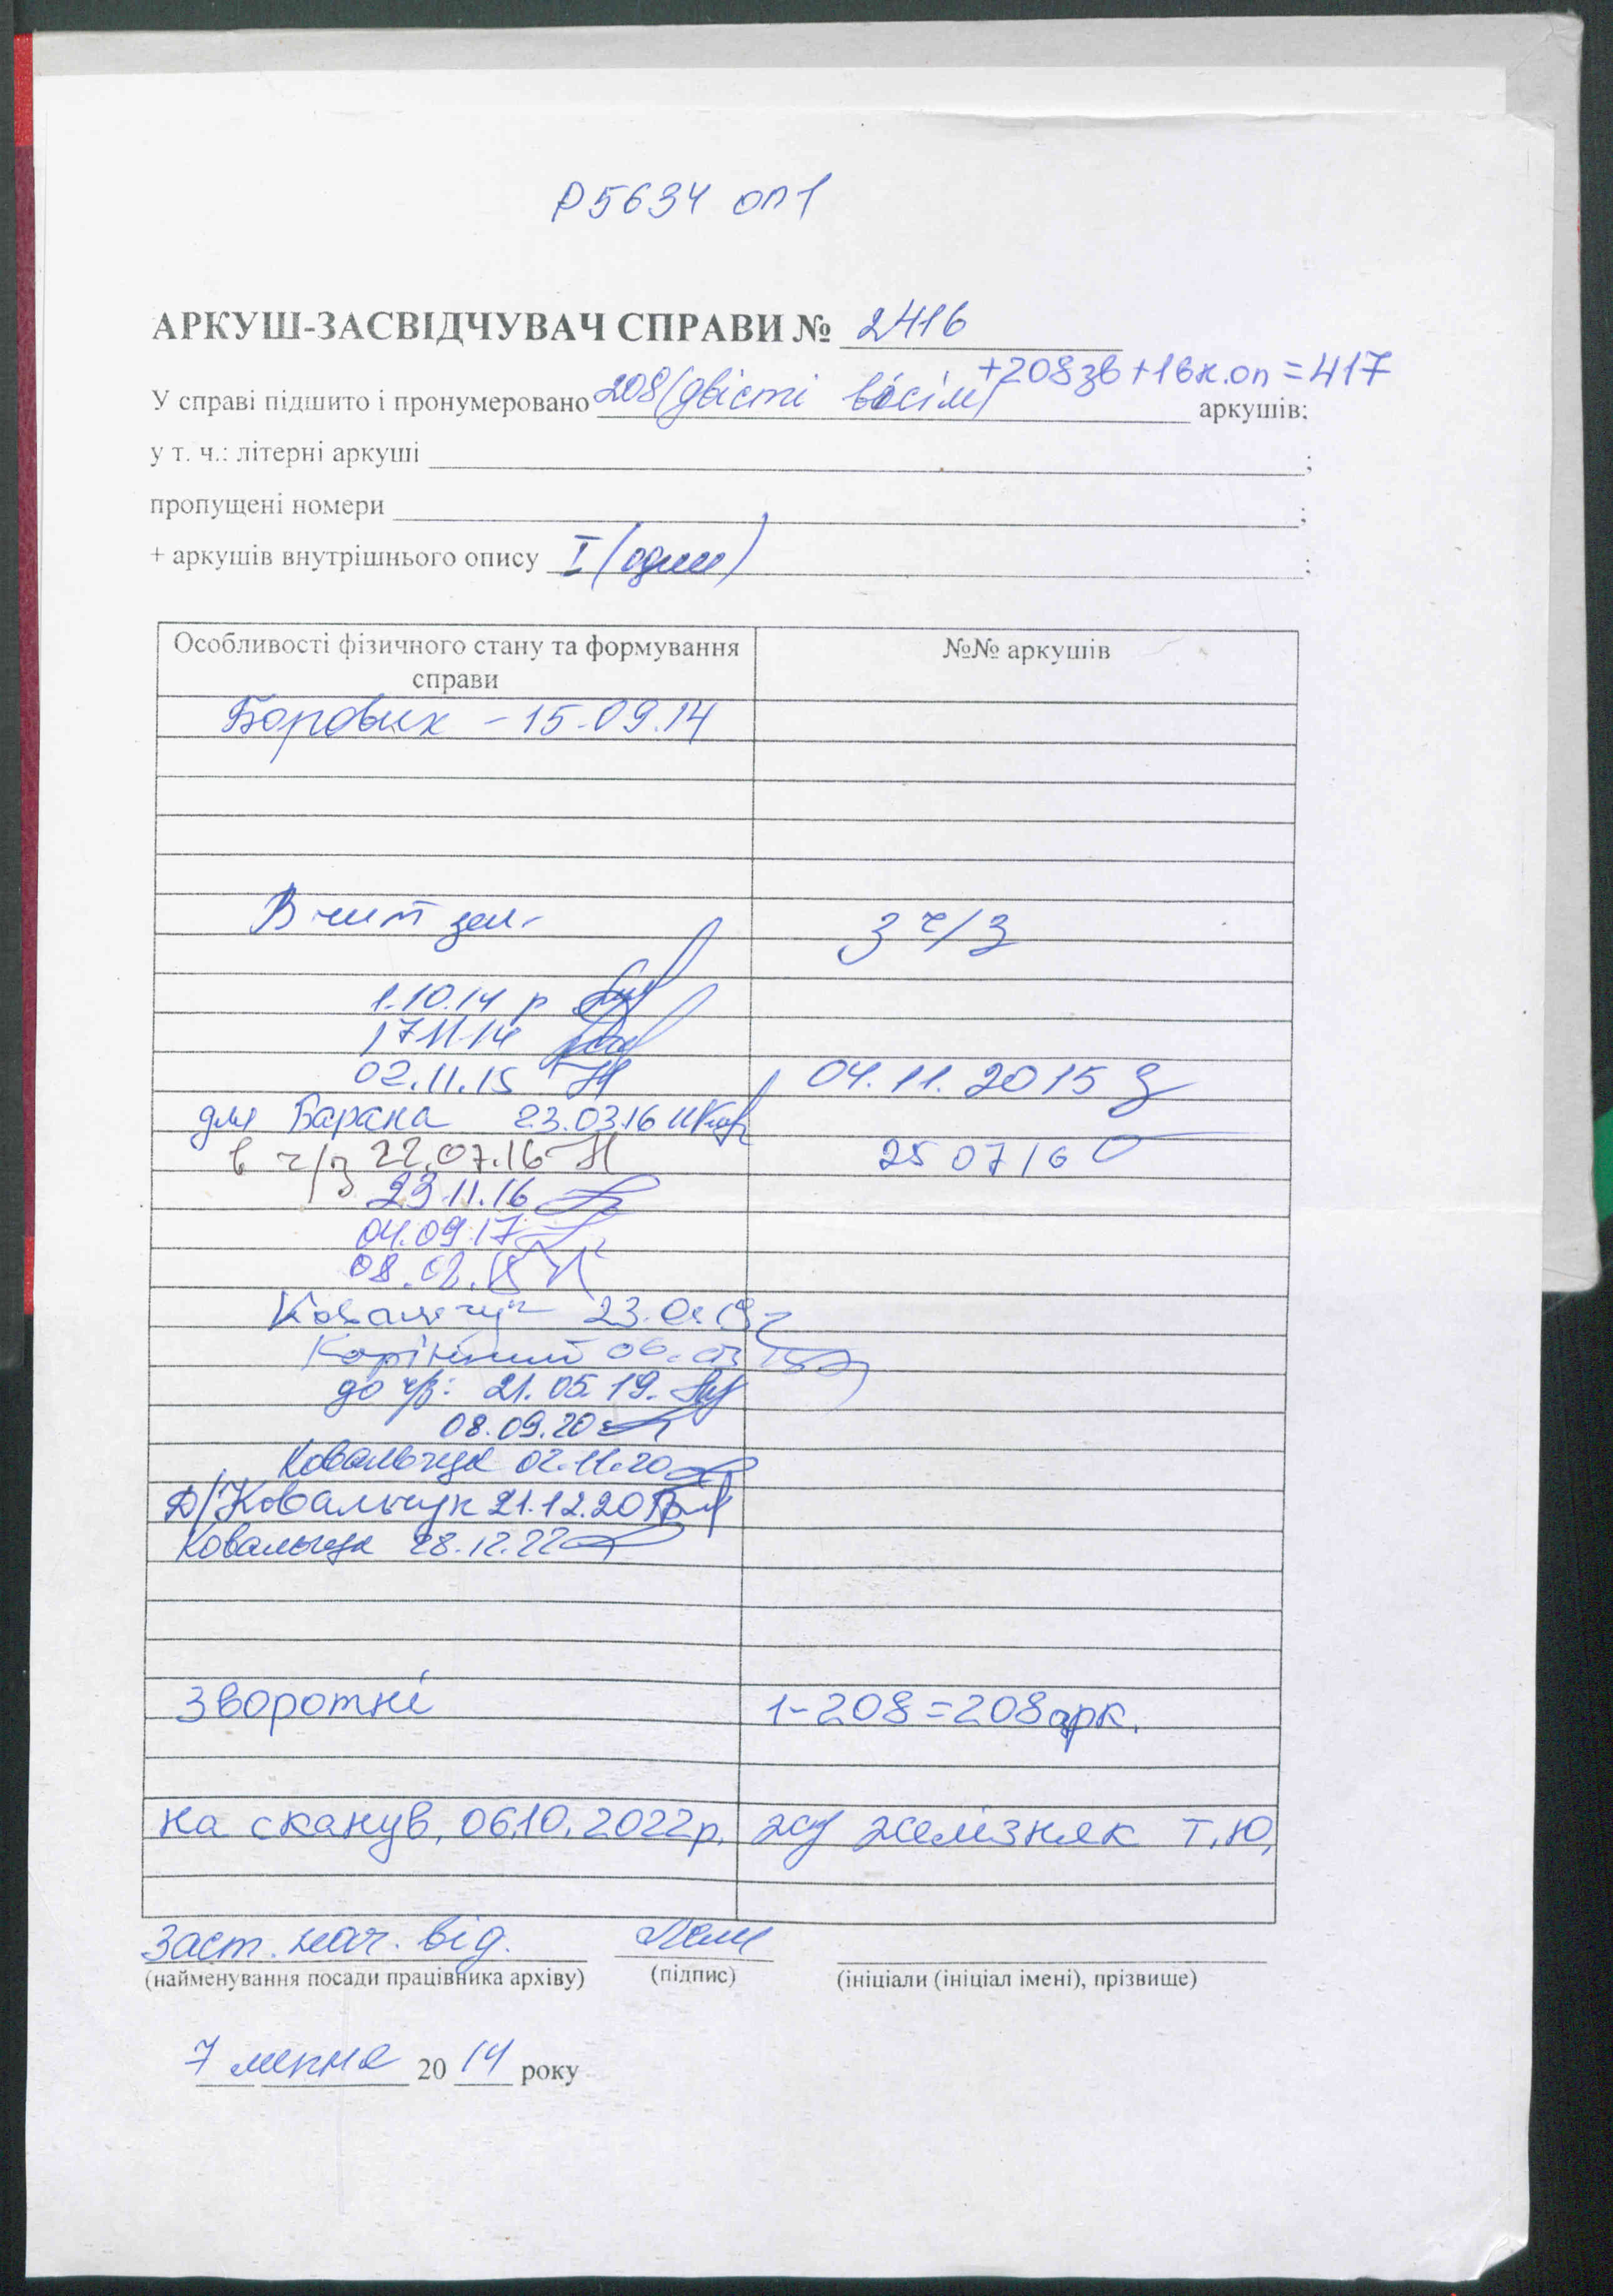 Р5634 оп1
АРКУШ-ЗАСВІДЧУВАЧ СПРАВИ № 2416
+208зв+1вн.оп=417
У справі підшито і пронумеровано 208(двісті вісім) аркушів;
у т. ч.: літерні аркуші ;
пропущені номери ;
+ аркушів внутрішнього опису I (один) ;
Особливості фізичного стану та формування справи №№ аркушів
Боровик - 15.09.14
В чит зал. З ч/з
1.10.14 р
17.11.14
02.11.15 04.11.2015
для Барана 23.03.16
в ч/з 22.07.16 25 07 16
23.11.16
04.09.17
08.02.18
Ковальчук 23.
06.03
до ч/з: 21.05.19.
08.09.20
Ковальчук 02.11.20
Д/Ковальчук 21.12.20
Ковальчук 28.12.22
Зворотні 1-208=208арк.
на сканув. 06.10.2022р. Желізняк Т.Ю.
Заст. нач. від.
(найменування посади працівника архіву) (підпис) (ініціали (ініціал імені), прізвище)
7 липня 2014 року